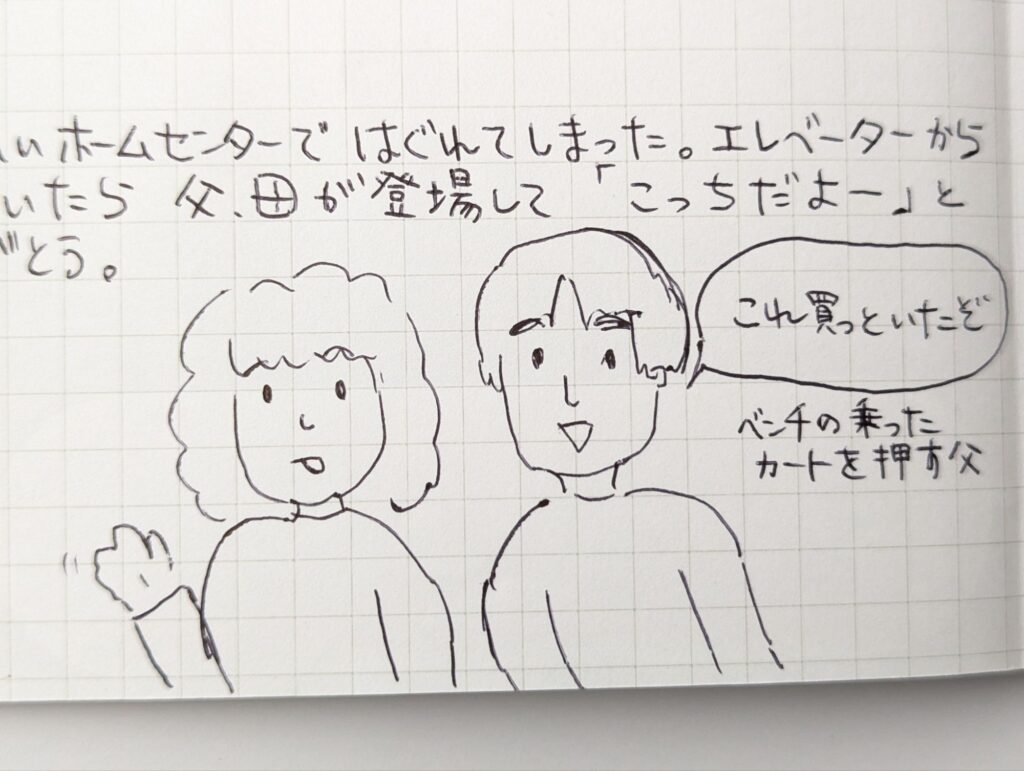 いホームセンターで はぐれてしまった。エレベーターから
いたら 父、母が登場して「こっちだよー」と
どう。
これ買っといたぞ
ベンチの乗った
カートを押す父